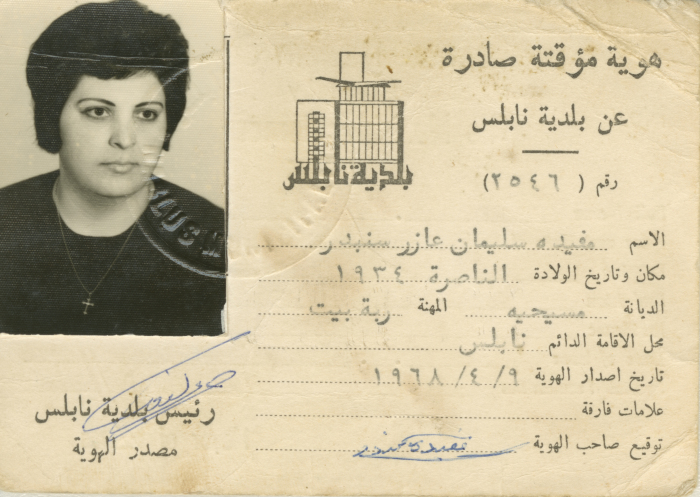 هوية مؤقتة صادرة
عن بلدية نابلس
بلدية نابلس
رقم ( ٢٥٤٦ )
الاسم مفيده سليمان عازر سنبر
مكان وتاريخ الولادة الناصرة ١٩٣٤
الديانة مسيحيه المهنة ربة بيت
محل الاقامة الدائم نابلس
تاريخ اصدار الهوية ٩/٤/١٩٦٨
علامات فارقة
توقيع صاحب الهوية
رئيس بلدية نابلس
مصدر الهوية